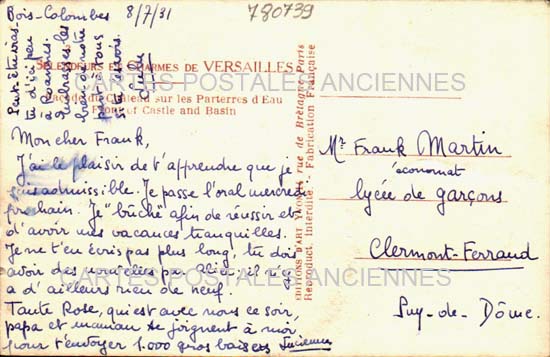 Bois-Colombes 8/7/31
780739
Peut-être iras-
tu d'ici peu
à
embrasses les
bien de notre
part à tous
SPLENDEURS ET CHARMES DE VERSAILLES
Façade du Château sur les Parterres d'Eau
Front of Castle and Basin
CARTES POSTALES ANCIENNES
EDITIONS D'ART YVON, 15 rue de Bretagne, Paris
Reproduction Interdite - Fabrication Française
Mon cher Frank,
J'ai le plaisir de t'apprendre que je
suis admissible. Je passe l'oral mercredi
prochain. Je "bûche" afin de réussir et
d'avoir mes vacances tranquilles.
Je ne t'en écris pas plus long, tu dois
avoir des nouvelles par il n'y
a d'ailleurs rien de neuf.
Tante Rose, qui est avec nous ce soir,
papa et maman se joignent à moi
pour t'envoyer 1.000 gros baisers Lucienne
Mr Frank Martin
économat
lycée de garçons
Clermont-Ferrand
Puy-de-Dôme.
CARTES POSTALES ANCIENNES